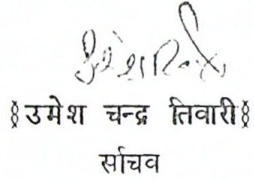 § उमेश चन्द्र तिवारी §
सचिव